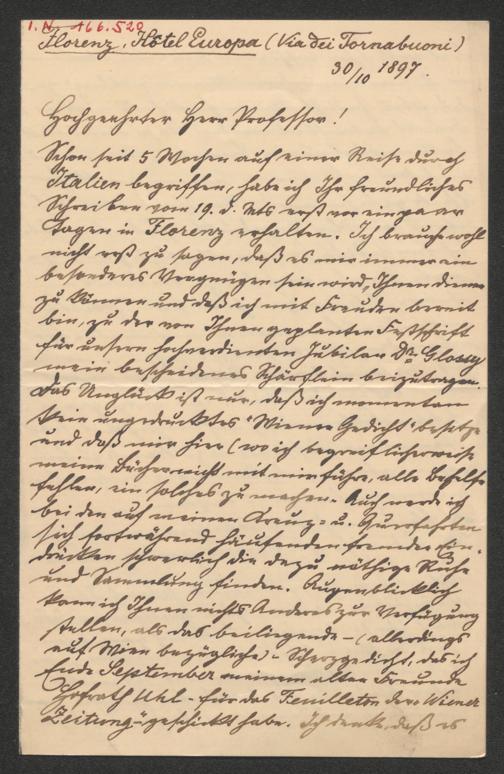 I.N. 166.520
Florenz, Hôtel Europa (Via dei Tornabuoni)
30/10 1897.
Hochgeehrter Herr Professor!
Schon seit 5 Wochen auf einer Reise durch
Italien begriffen, habe ich Ihr freundliches
Schreiben vom 19. d. Mts erst vor ein paar
Tagen in Florenz erhalten. Ich brauche wohl
nicht erst zu sagen, daß es mir immer ein
besonderes Vergnügen sein wird, Ihnen dienen
zu können und daß ich mit Freuden bereit
bin, zu der von Ihnen geplanten Festschrift
für unsern hochverdienten Jubilar Dr. Glossy
mein bescheidenes Schärflein beizutragen.
Das Unglück ist nur, daß ich momentan
kein ungedrucktes "Wiener Gedicht" besitze
und daß mir hier (wo ich begreiflicherweise
meine Bücher nicht mit mir führe, alle Behelfe
fehlen, ein solches zu machen. Auch werde ich
bei den auf meinen Kreuz- u. Querfahrten
sich fortwährend häufenden fremden Ein-
drücken schwerlich die dazu nöthige Ruhe
und Sammlung finden. Augenblicklich
kann ich Ihnen nichts Anderes zur Verfügung
stellen, als das beiliegende – (allerdings
auf Wien bezügliche) – Scherzgedicht, das ich
Ende September meinem alten Freunde
Hofrath Uhl – für das Feuilleton der "Wiener
Zeitung" geschickt habe. Ich denke, daß es